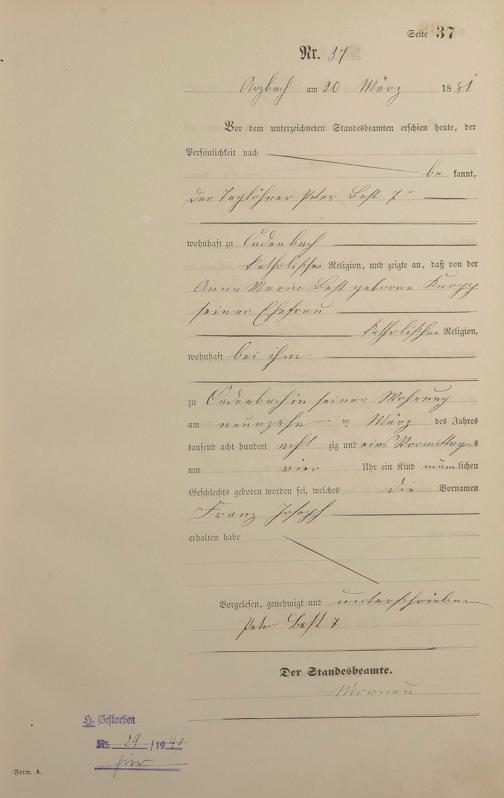 Seite 37
Nr. 37
Arzbach am 20 März 1881
Vor dem unterzeichneten Standesbeamten erschien heute, der
Persönlichkeit nach
be kannt,
der Taglöhner Peter Best 7r
wohnhaft zu Cadenbach
katholischer Religion, und zeigte an, daß von der
Anna Maria Best geborne Knopp
seiner Ehefrau
katholischer Religion,
wohnhaft bei ihm
zu Cadenbach in seiner Wohnung
am neunzehn ten März des Jahres
tausend acht hundert acht zig und eins Vormittags
um vier Uhr ein Kind männlichen
Geschlechts geboren worden sei, welches die Vornamen
Franz Joseph
erhalten habe
Vorgelesen, genehmigt und unterschrieben
Peter Best 7
Der Standesbeamte.
H. Gestorben
Nr. 29 / 1940
hier
Form. A.